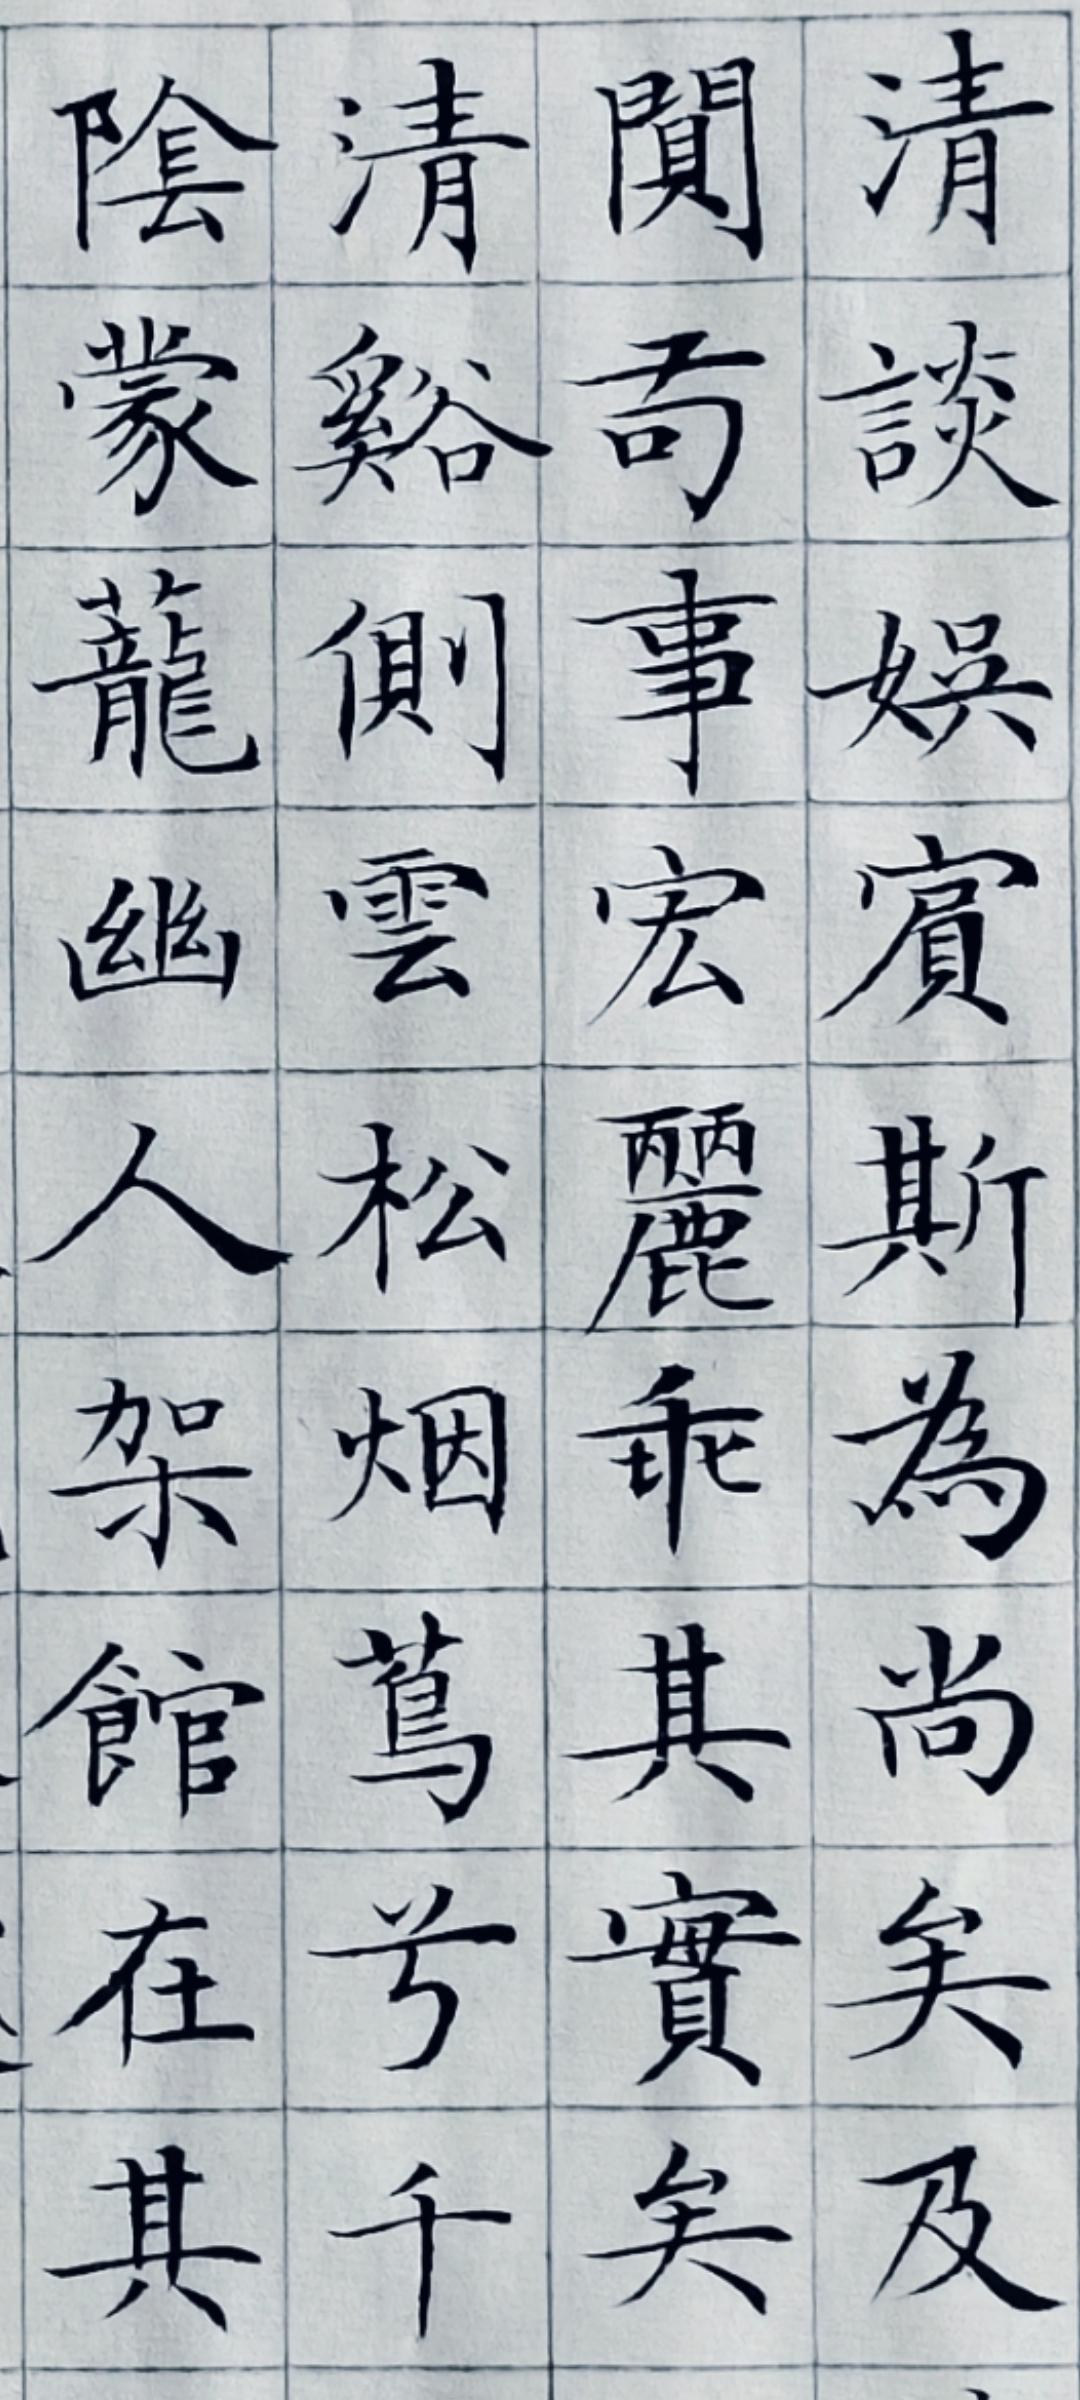 清談娛賓斯為尚矣及
閴苟事宏麗乖其實矣
清谿側雲松烟蔦兮千
陰蒙蘢幽人架館在其